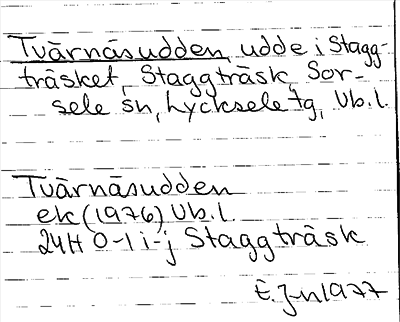 Tvärnäsudden, udde i Stagg-
träsket, Staggträsk, Sor-
sele sn, Lycksele tg, Vb.l.
Tvärnäsudden
ek (1976) Vb.l.
24H 0-1 i-j Staggträsk
E. J-n 1977